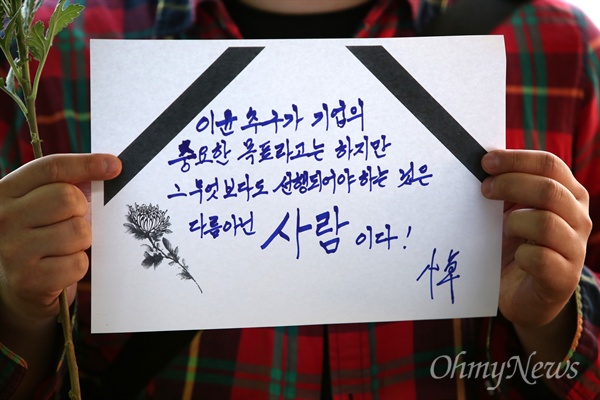 이윤 추구가 기업의
중요한 목표라고는 하지만
그 무엇보다도 선행되어야 하는 것은
다름아닌 사람이다!
OhmyNews